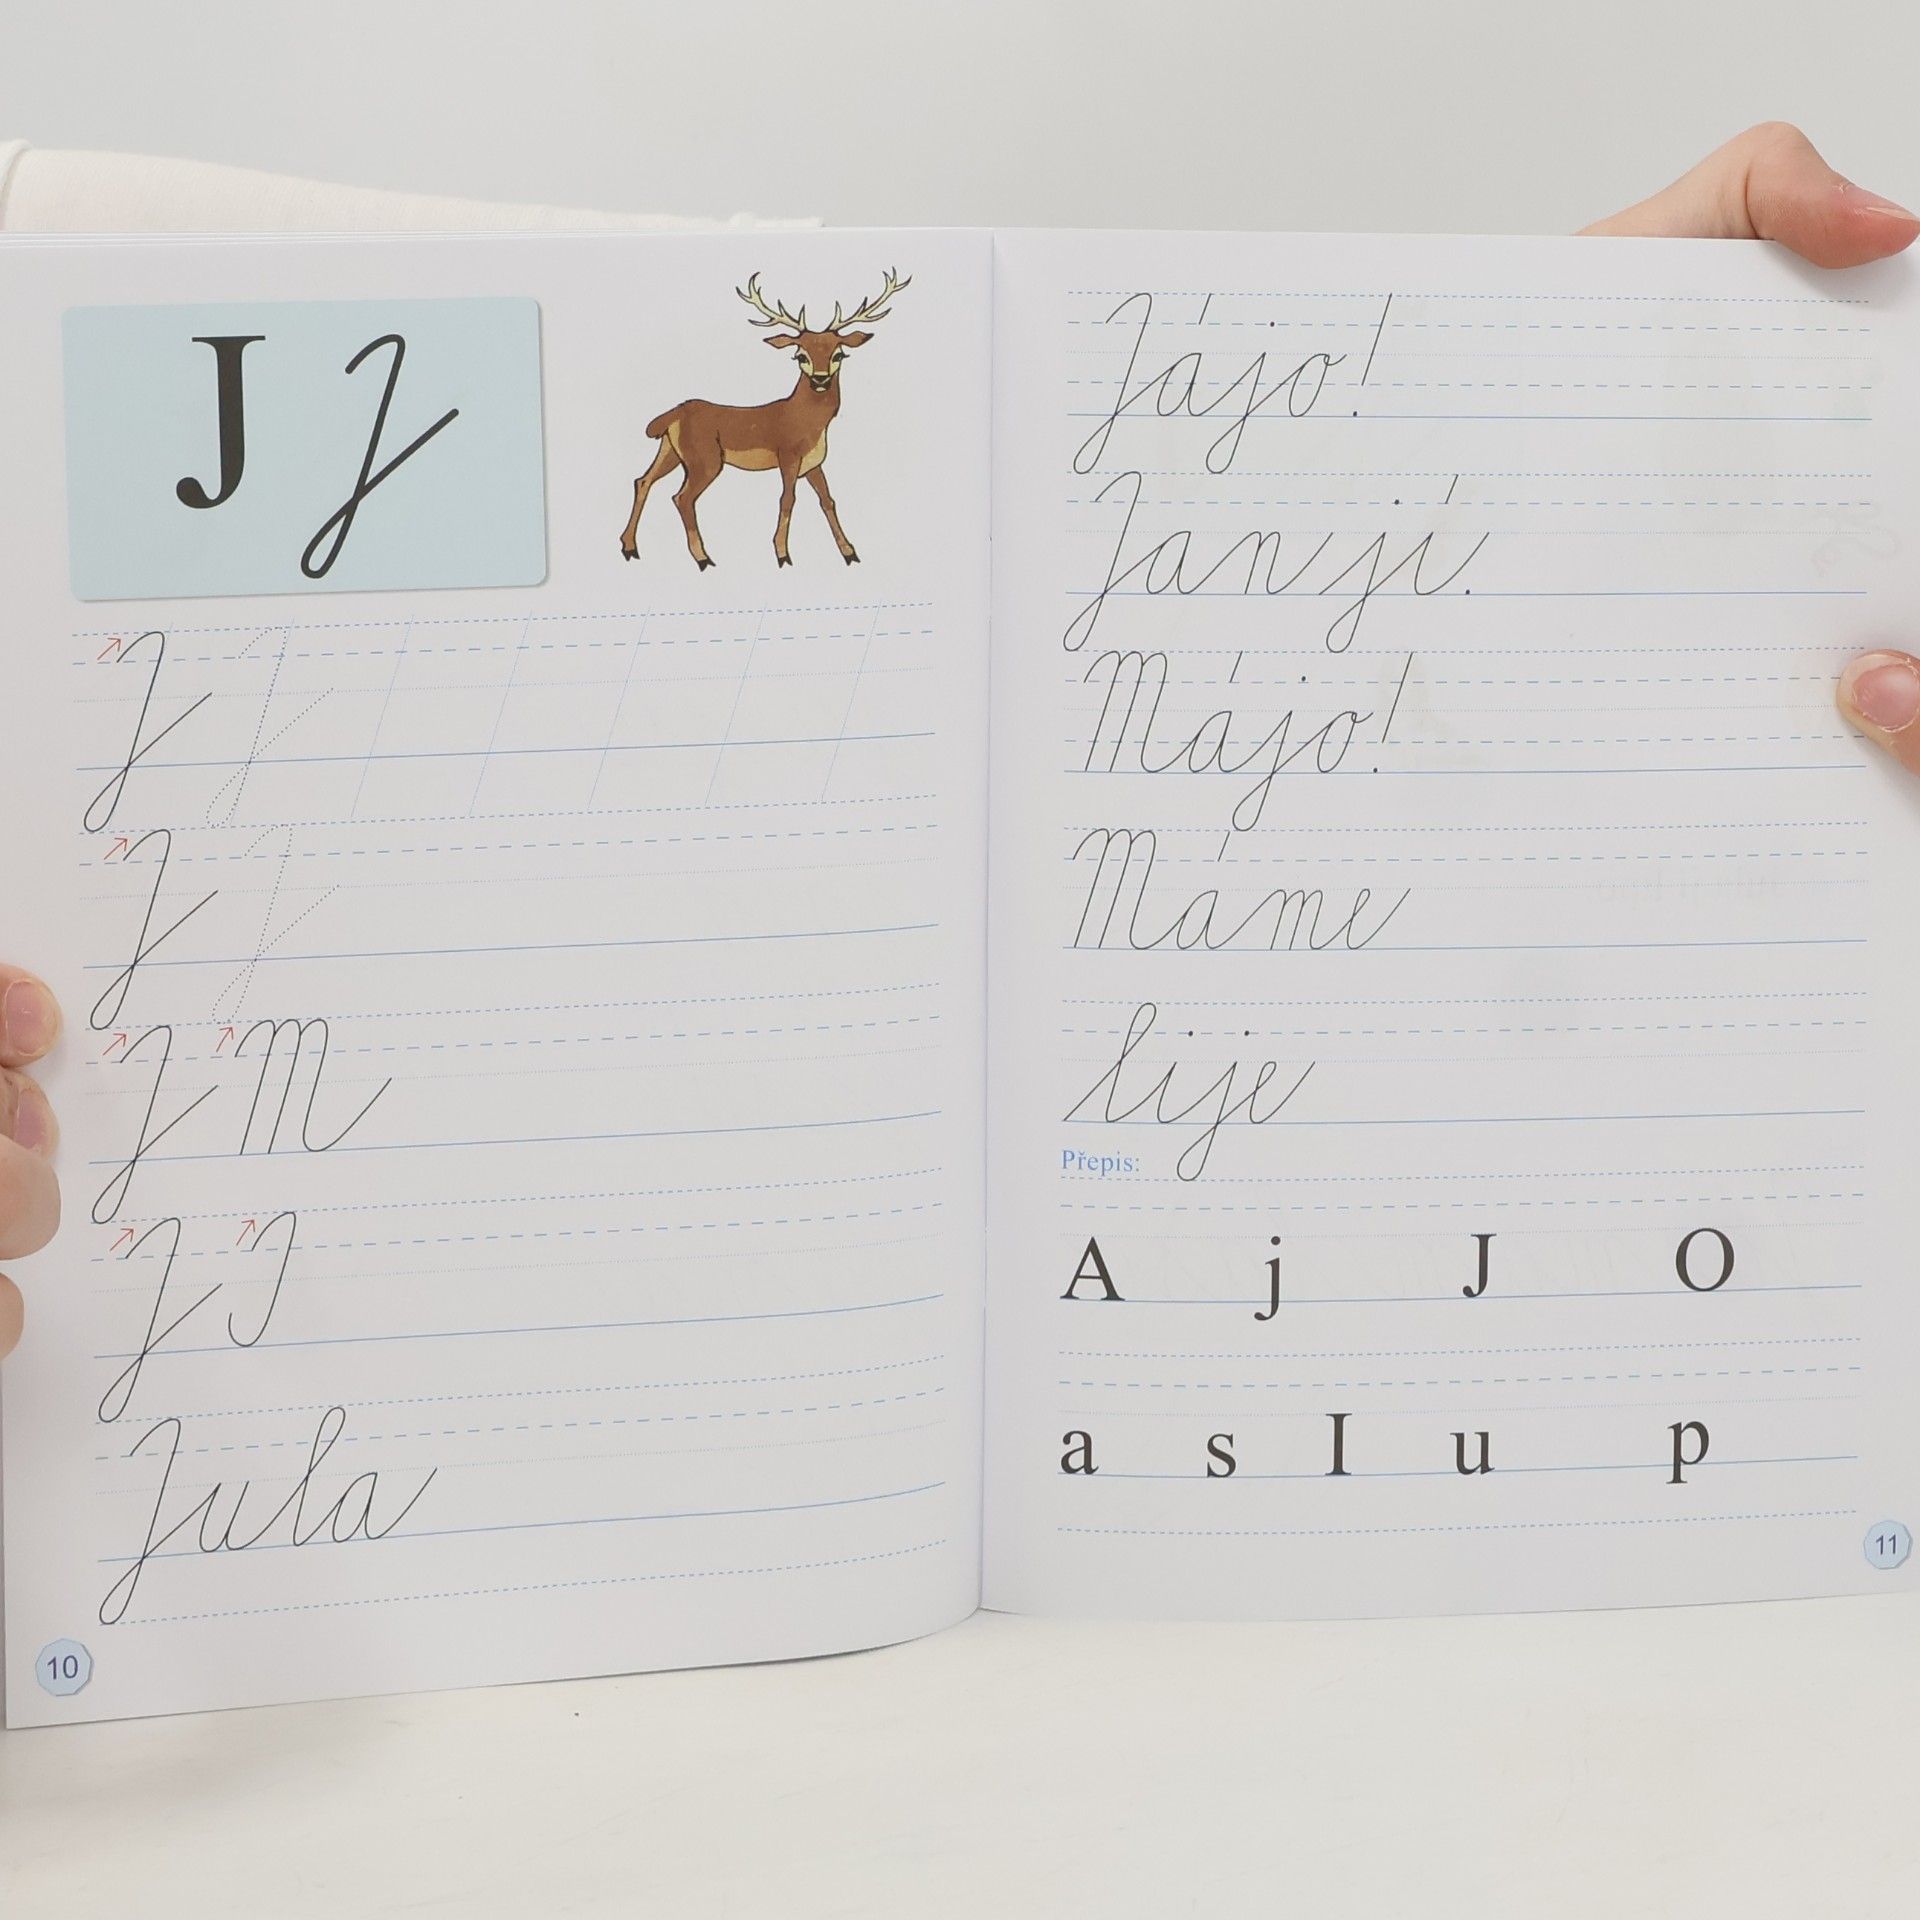 J J
J J
J J
J M
J I
Jula
10
Jájo!
Jan jí.
Májo!
Máme
lije
Přepis:
A j J O
a s I u p
11